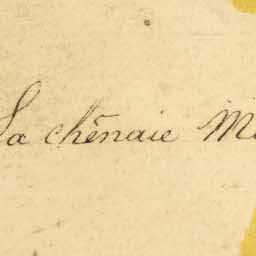 La chênaie M